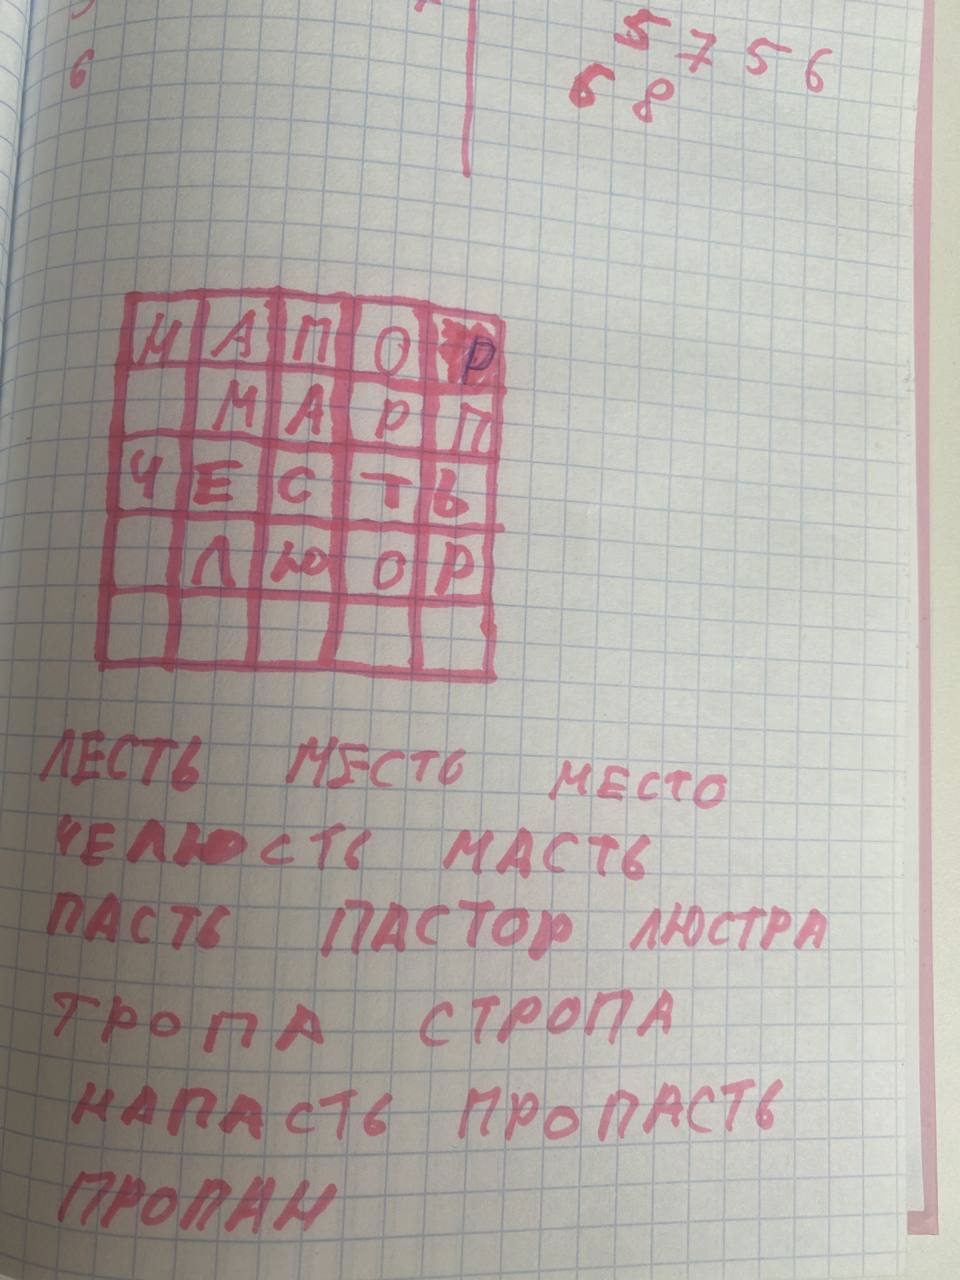 5 7 5 6
6
6 8
Н А П О Р
М А Р П
Ч Е С Т Ь
Л Ю О Р
ЛЕСТЬ МЕСТЬ МЕСТО
ЧЕЛЮСТЬ МАСТЬ
ПАСТЬ ПАСТОР ЛЮСТРА
ТРОПА СТРОПА
НАПАСТЬ ПРОПАСТЬ
ПРОПАН